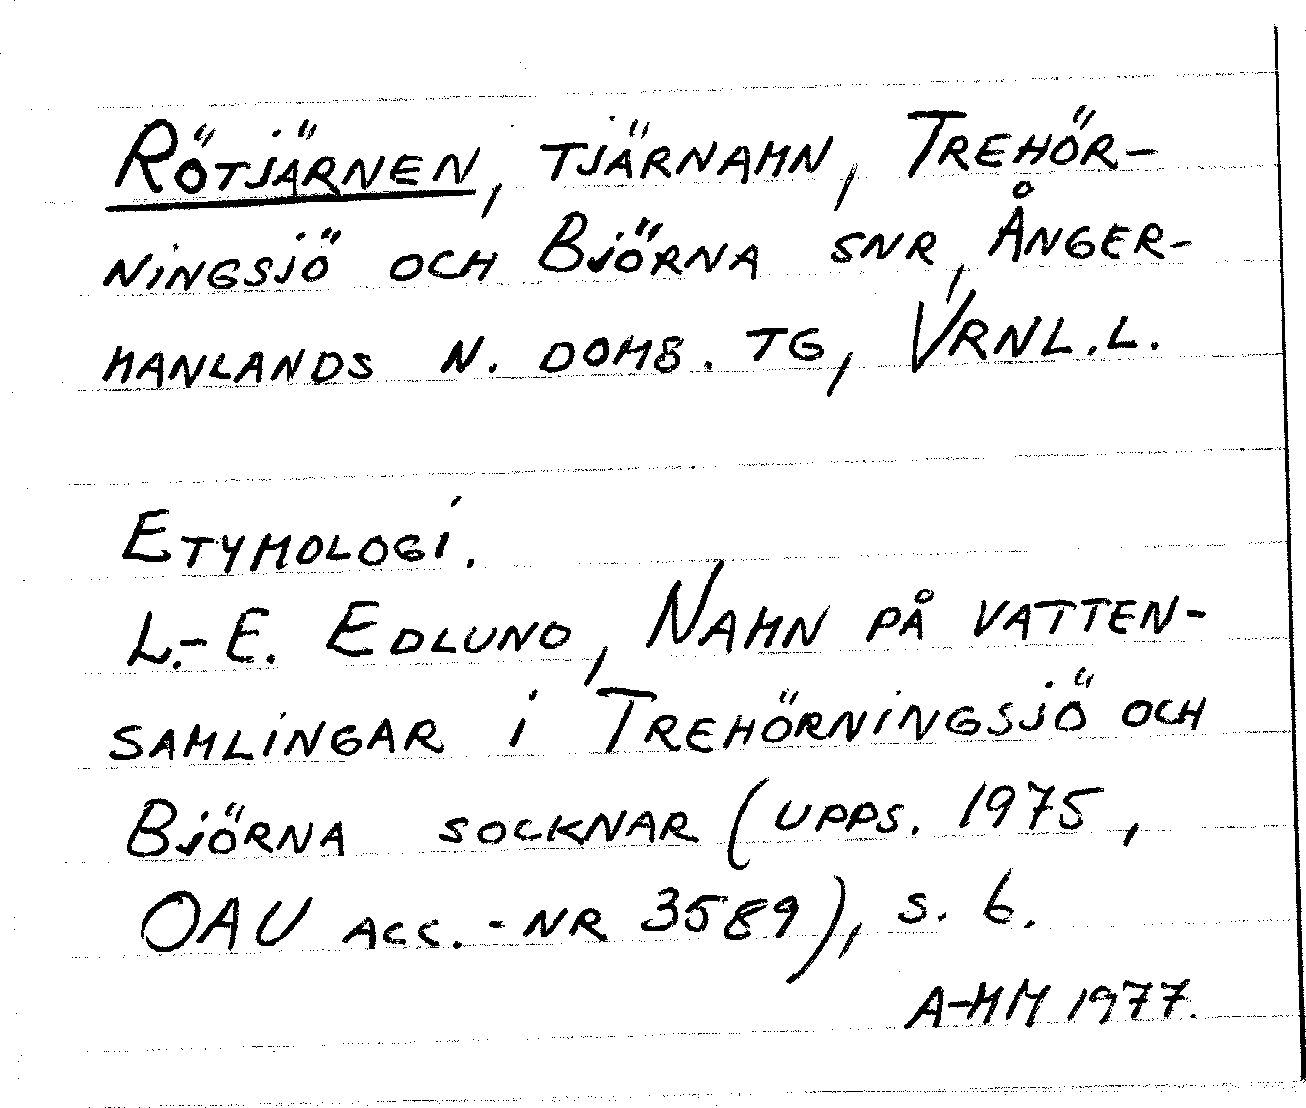 RÖTJÄRNEN, TJÄRNAMN, TREHÖR-
NINGSJÖ OCH BJÖRNA SNR, ÅNGER-
MANLANDS N. DOMS. TG, VRNL.L.
ETYMOLOGI.
L.-E. EDLUND, NAMN PÅ VATTEN-
SAMLINGAR I TREHÖRNINGSJÖ OCH
BJÖRNA SOCKNAR (UPPS. 1975,
OAU ACC.-NR 3589), S. 6.
A-MM 1977.